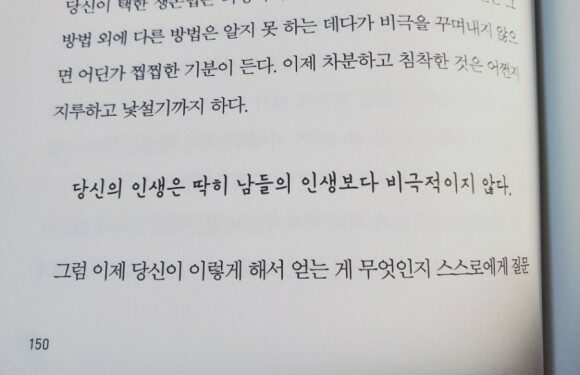 당신이 택한
방법 외에 다른 방법은 알지 못 하는 데다가 비극을 꾸며내지 않으
면 어딘가 찝찝한 기분이 든다. 이제 차분하고 침착한 것은 어쩐지
지루하고 낯설기까지 하다.
당신의 인생은 딱히 남들의 인생보다 비극적이지 않다.
그럼 이제 당신이 이렇게 해서 얻는 게 무엇인지 스스로에게 질문
150